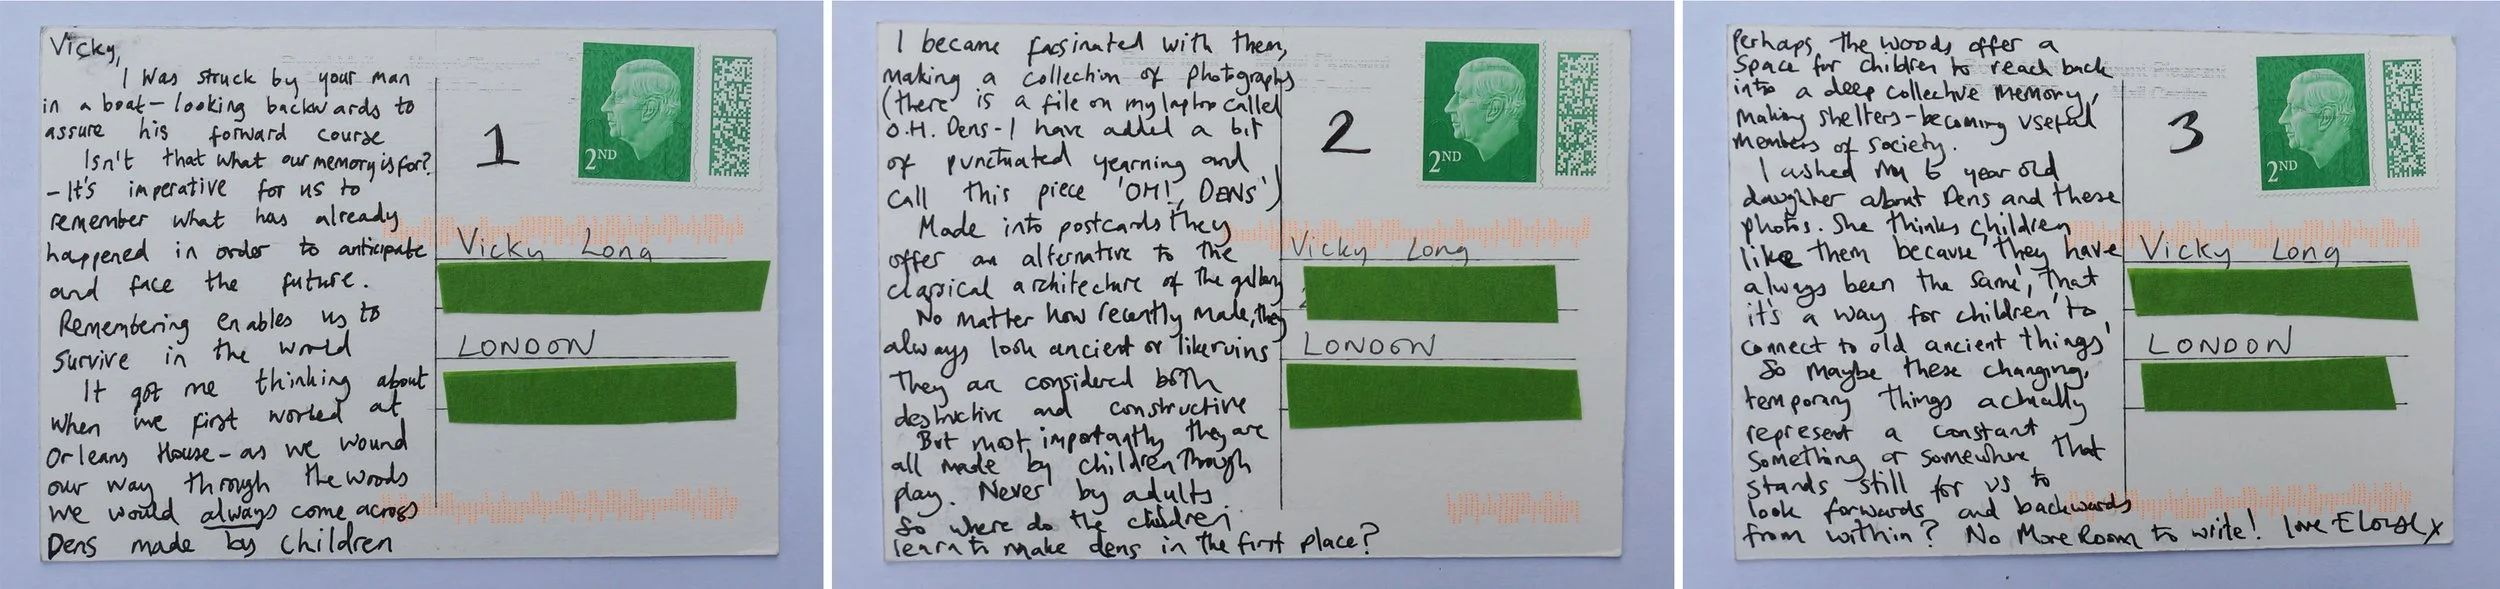 Vicky,
I was struck by your man
in a boat – looking backwards to
assure his forward course
Isn't that what our memory is for?
– It's imperative for us to
remember what has already
happened in order to anticipate
and face the future.
Remembering enables us to
survive in the world
It got me thinking about
when we first worked at
Orleans House – as we wound
our way through the woods
we would always come across
Dens made by children
1
2ND
Vicky Long
LONDON
I became facsinated with them,
making a collection of photographs
(there is a file on my laptop called
O.H. Dens - I have added a bit
of punctuated yearning and
call this piece 'OH!, DENS')
Made into postcards they
offer an alternative to the
classical architecture of the gallery
No matter how recently made, they
always look ancient or like ruins
They are considered both
destructive and constructive
But most importantly they are
all made by children through
play. Never by adults
So where do the children
learn to make dens in the first place?
2
2ND
Vicky Long
LONDON
Perhaps the woods offer a
space for children to reach back
into a deep collective memory,
making shelters – becoming useful
members of society.
I asked my 6 year old
daughter about Dens and these
photos. She thinks children
like them because 'they have
always been the same', that
it's a way for children 'to
connect to old ancient things'
So maybe these changing,
temporary things actually
represent a constant
something or somewhere that
stands still for us to
look forwards and backwards
from within? No More Room to write! love Eloise x
3
2ND
Vicky Long
LONDON